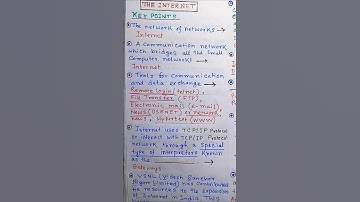 THE INTERNET
KEY POINTS
The network of networks →
Internet
A communication network
which bridges all the small
computer networks →
Internet
Tools for communication
and data exchange →
Remote login (telnet),
File Transfer (FTP),
Electronic mail (e-mail)
News (USENET) or network
news, Hypertext (WWW)
Internet uses TCP/IP Protocol
to interact with TCP/IP Protocol
network through a special
type of interpreters known
as the
Gateways
VSNL (Videsh Sanchar
Nigam Limited) has contributed
its resources to the expansion
of Internet in India. This